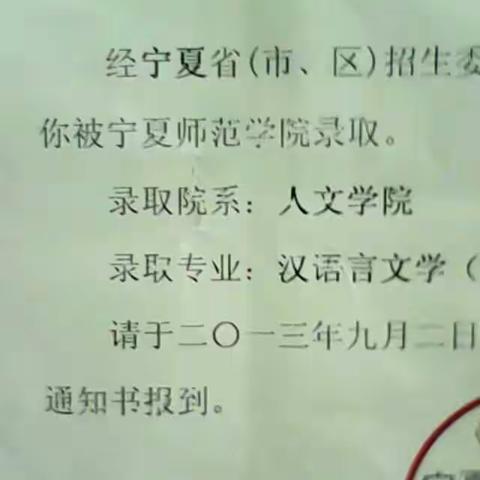 经宁夏省(市、区)招生委
你被宁夏师范学院录取。
录取院系：人文学院
录取专业：汉语言文学（
请于二〇一三年九月二日
通知书报到。